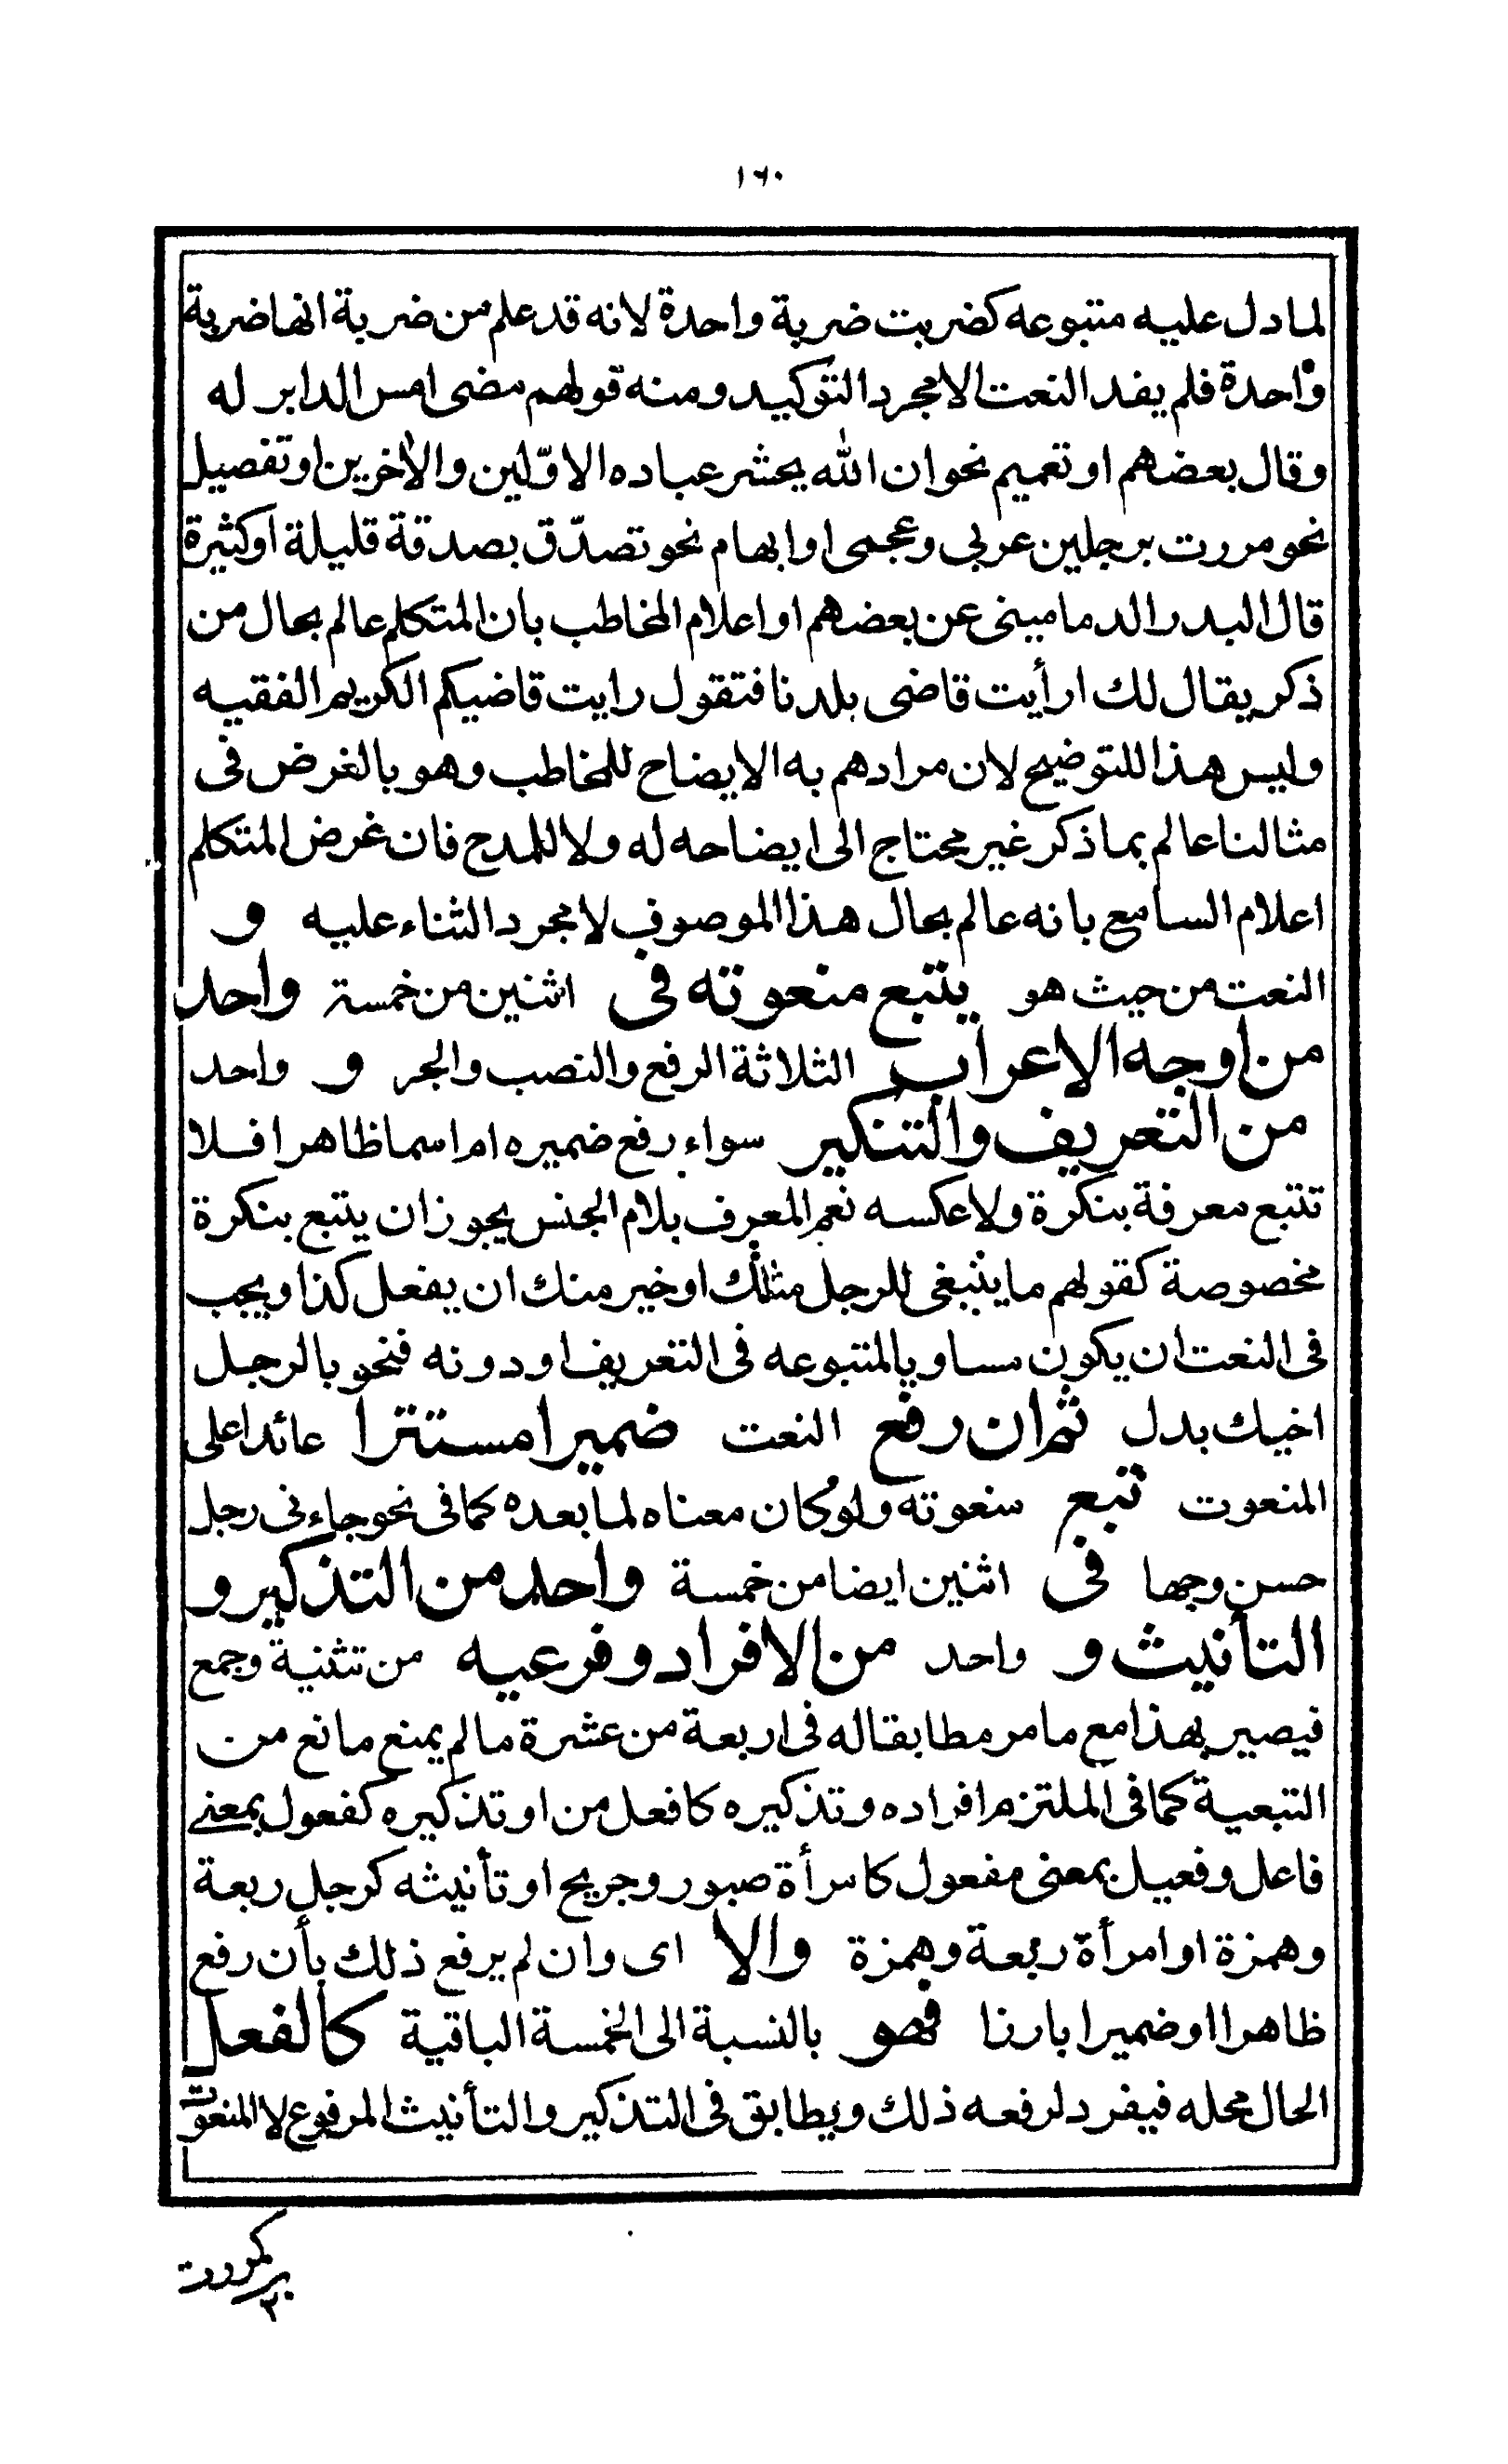 ١٦٠
لما دل عليه متبوعه كضربت ضربة واحدة لانه قد علم من ضربة انها ضربة
واحدة فلم يفد النعت الا مجرد التوكيد ومنه قولهم مضى امس الدابر له
وقال بعضهم او تعميم نحو ان الله يحشر عباده الاوّلين والاخرين او تفصيل
نحو مررت برجلين عربى وعجمى او ابهام نحو تصدّق بصدقة قليلة او كثيرة
قال البدر الدمامينى عن بعضهم او اعلام المخاطب بان المتكلم عالم بحال من
ذكر يقال لك ارأيت قاضى بلدنا فتقول رايت قاضيكم الكريم الفقيه
وليس هذا للتوضيح لان مرادهم به الايضاح للمخاطب وهو بالفرض فى
مثالنا عالم بما ذكر غير محتاج الى ايضاحه له ولا للمدح فان غرض المتكلم
اعلام السامع بانه عالم بحال هذا الموصوف لا مجرد الثناء عليه و
النعت من حيث هو يتبع منعوته فى اثنين من خمسة واحد
من اوجه الاعراب الثلاثة الرفع والنصب والجر و واحد
من التعريف والتنكير سواء رفع ضميره ام اسما ظاهرا فلا
تتبع معرفة بنكرة ولا عكسه نعم المعرف بلام الجنس يجوز ان يتبع بنكرة
مخصوصة كقولهم ما ينبغى للرجل مثلك او خير منك ان يفعل كذا ويجب
فى النعت ان يكون مساويا لمتبوعه فى التعريف او دونه فنحو بالرجل
اخيك بدل ثم ان رفع النعت ضميرا مستترا عائدا على
المنعوت تبع منعوته ولو كان معناه لما بعده كما فى نحو جاءنى رجل
حسن وجها فى اثنين ايضا من خمسة واحد من التذكير و
التأنيث و واحد من الافراد وفرعيه من تثنية وجمع
فيصير بهذا مع ما مر مطابقا له فى اربعة من عشرة ما لم يمنع مانع من
التبعية كما فى الملتزم افراده وتذكيره كافعل من او تذكيره كفعول بمعنى
فاعل وفعيل بمعنى مفعول كامرأة صبور وجريح او تأنيثه كرجل ربعة
وهمزة او امرأة ربعة وهمزة والا اى وان لم يرفع ذلك بأن رفع
ظاهرا او ضميرا بارزا فهو بالنسبة الى الخمسة الباقية كالفعل
الحال محله فيفرد لرفعه ذلك ويطابق فى التذكير والتأنيث المرفوع لا المنعوت
كمررت